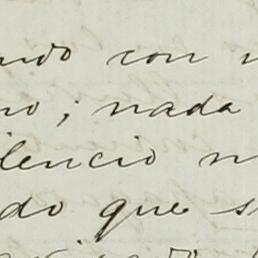 ndo con
no; nada
ilencio n
do que s